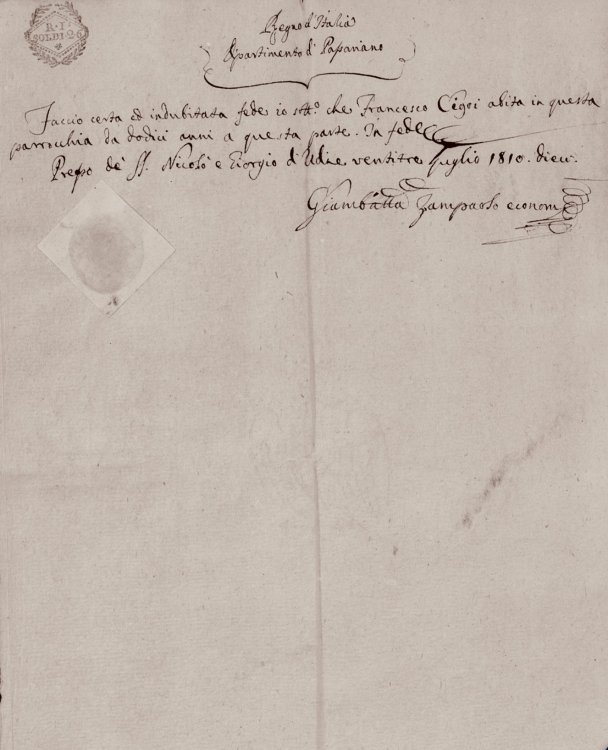 R. I.
SOLDI. 2. 6
Regno d'Italia
Dipartimento di Passariano
Faccio certa ed indubitata fede io sottº che Francesco Cigoi abita in questa
parrochia da dodici anni a questa parte. In fede
de' SS. Nicolò e Giorgio di Udine ventitre Luglio 1810. diecì.
Giambatta Zampaolo econom